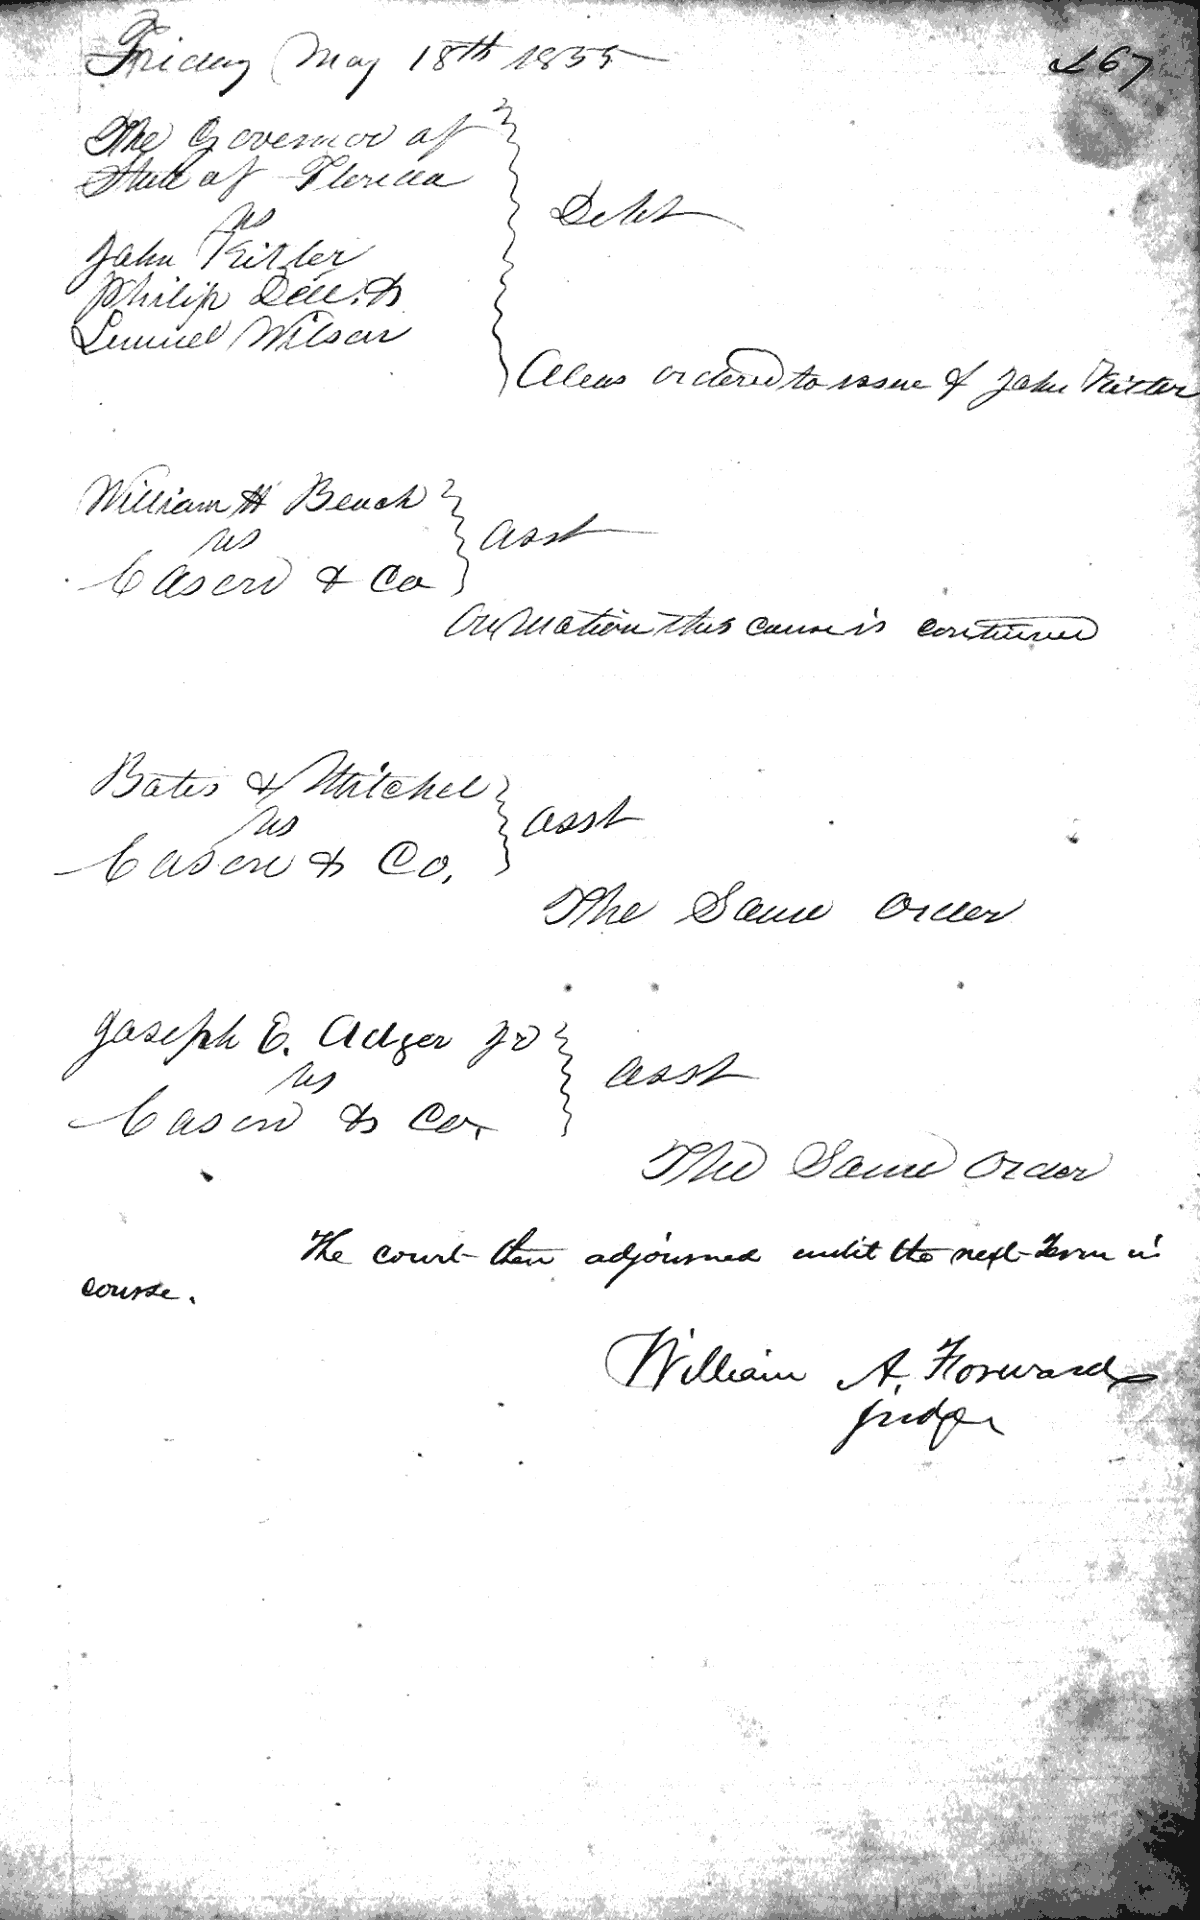 Friday May 18th 1855
267
The Governor of
State of Florida
vs
John Kitler
Philip Dell &
Lemuel Wilson
Debt
Alias ordered to issue John Kitler
William H Beach
vs
Cason & Co
asst
On Motion this cause is continued
Bates & Mitchel
vs
Cason & Co,
asst
The Same Order
Joseph E. Adger Jr
vs
Cason & Co.
asst
The Same Order
The court then adjourned until the next Term in
course.
William A. Forward
Judge